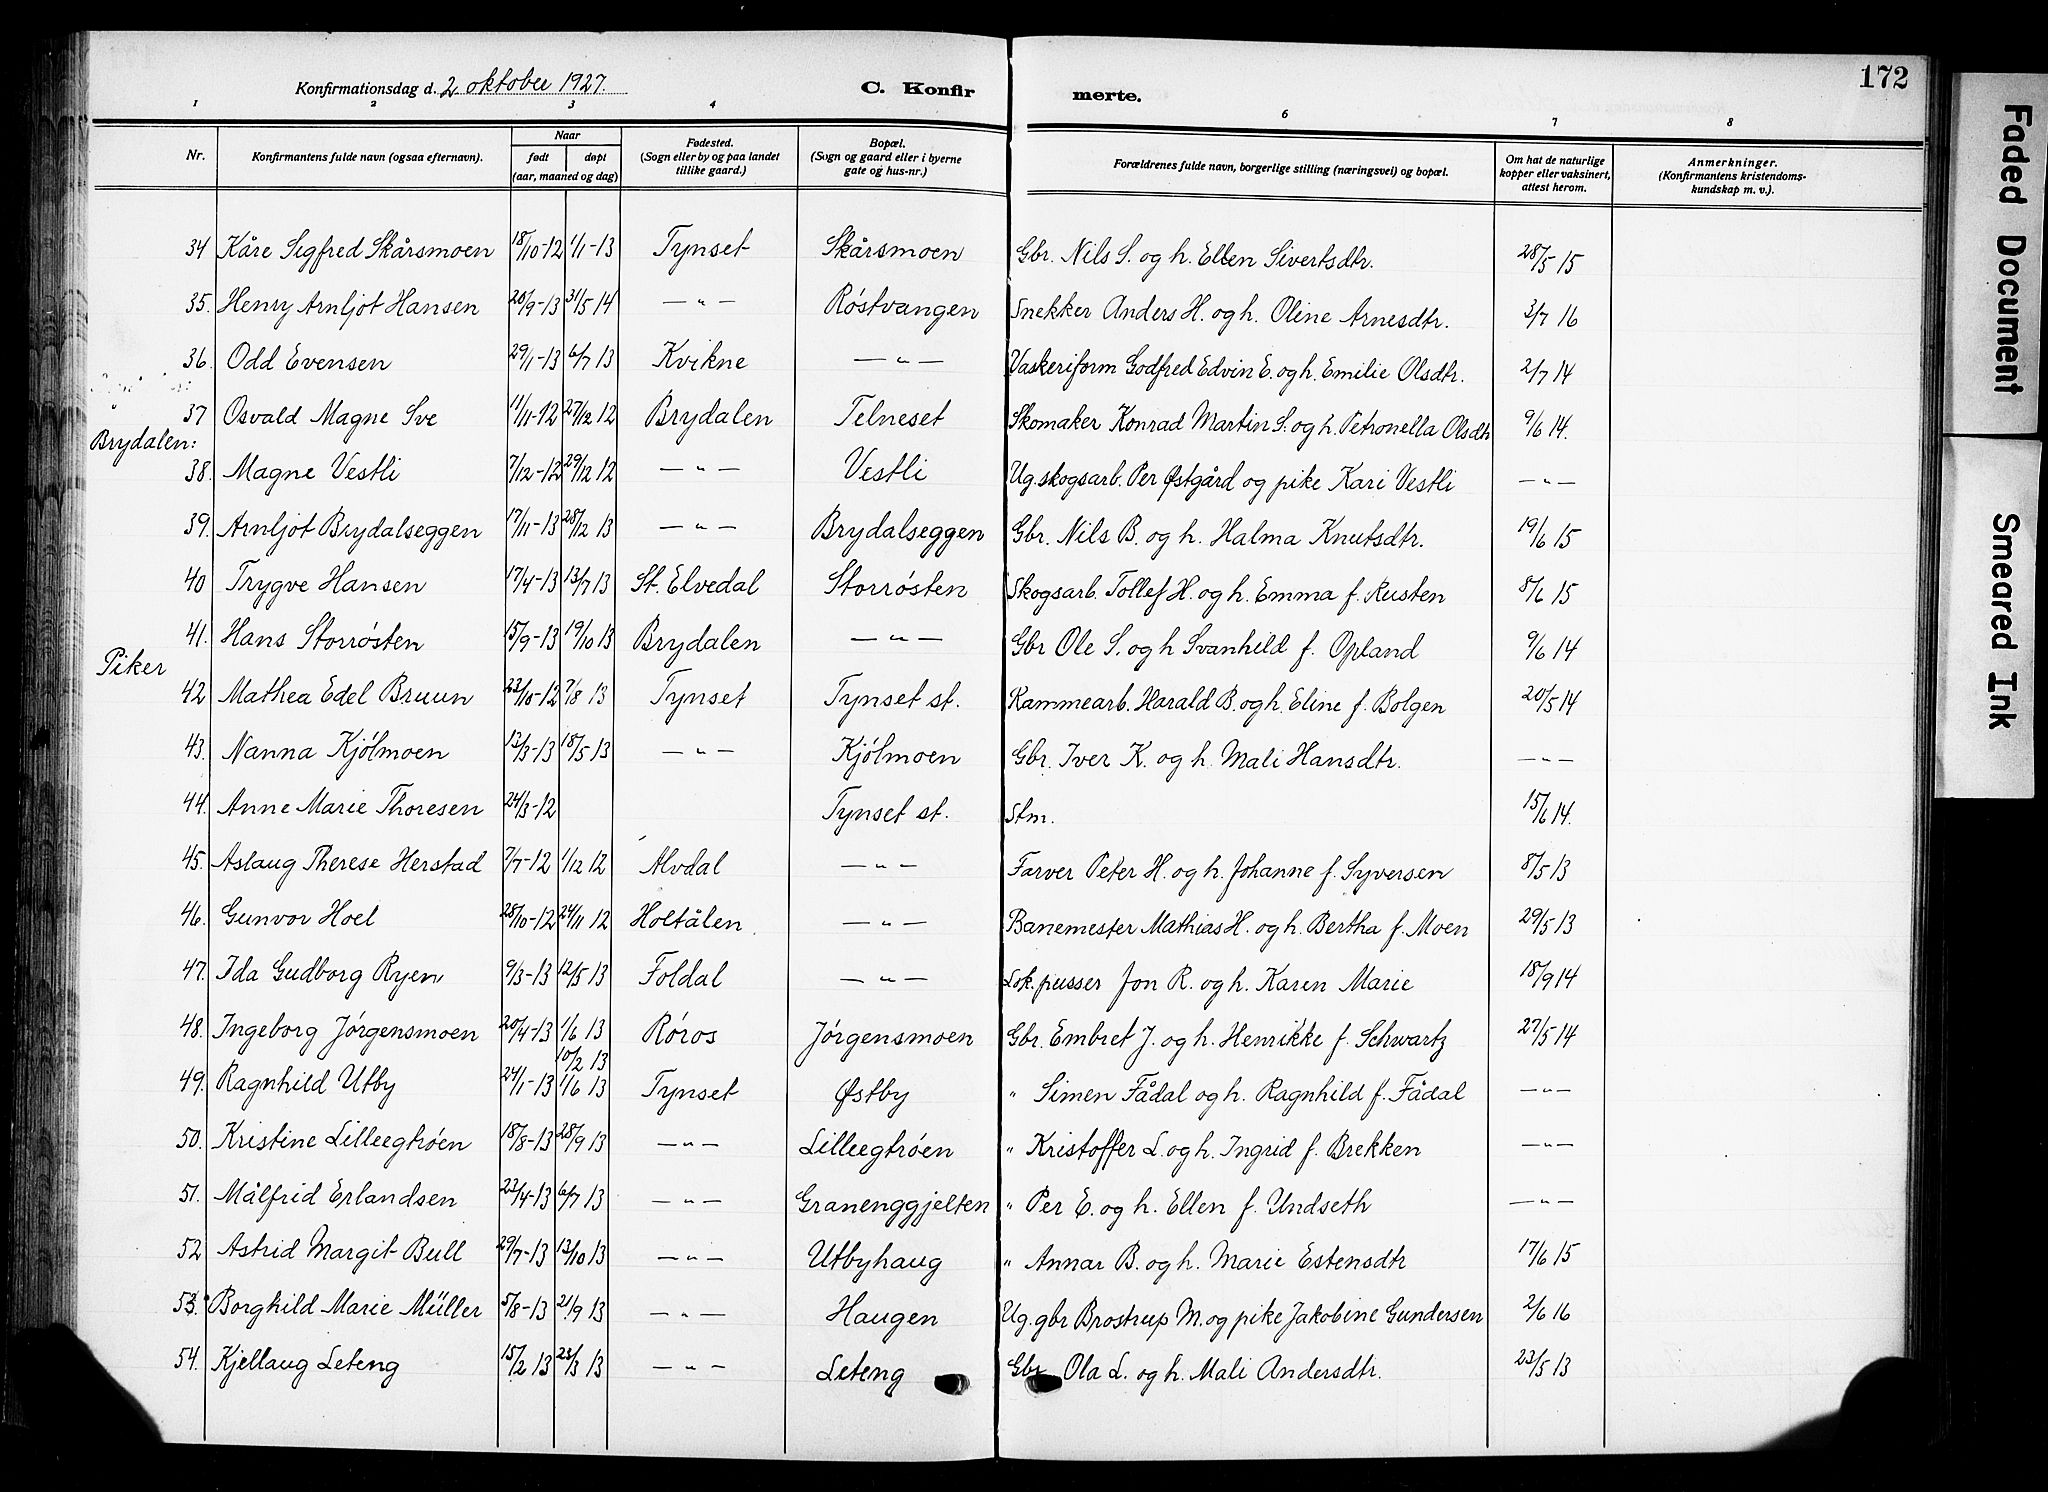 172
Konfirmationsdag d. 2. oktober 1927. C. Konfirmerte.
1 2 3 4 5 6 7 8
Nr. Konfirmantens fulde navn (ogsaa efternavn). Naar født døpt (aar, maaned og dag) Fødested. (Sogn eller by og paa landet tillike gaard.) Bopæl. (Sogn og gaard eller i byerne gate og hus-nr.) Forældrenes fulde navn, borgerlige stilling (næringsvei) og bopæl. Om hat de naturlige kopper eller vaksinert, attest herom. Anmerkninger. (Konfirmantens kristendomskundskap m. v.).
34 Kåre Sigfred Skårsmoen 18/10-12 1/1-13 Tynset Skårsmoen Gbr. Nils S. og h. Ellen Sivertsdtr. 28/5 15
35. Henry Arnljot Hansen 20/9-13 31/5 14 —"— Røstvangen Snekker Anders H. og h. Oline Arnesdtr. 3/7 16
36. Odd Evensen 29/1-13 6/7 13 Kvikne —"— Vaskeriform Godfred Edvin E. og h. Emilie Olsdtr. 2/7 14
37 Osvald Magne Sve 11/11-12 27/12 12 Brydalen Telneset Skomaker Konrad Martin S. og h. Petronella Olsdtr 9/6 14.
Brydalen:
38. Magne Vestli 7/12-12 29/12 12 —"— Vestli Ug. skogsarb. Per Østgård og pike Kari Vestli —"—
39. Arnljot Brydalseggen 17/11-13 28/12 13 —"— Brydalseggen Gbr. Nils B. og h. Halma Knutsdtr. 19/6 15
40 Trygve Hansen 17/4-13 13/7 13 St. Elvedal Storrøsten Skogsarb. Tollef H. og h. Emma f. Rusten 8/6 15
41. Hans Storrøsten 15/9-13 19/10 13 Brydalen —"— Gbr Ole S. og h Svanhild f. Opland 9/6 14
Piker
42 Mathea Edel Bruun 23/10-12 7/8 13 Tynset Tynset st. Rammearb. Harald B. og h. Eline f. Bolgen 20/5 14
43. Nanna Kjølmoen 13/3-13 18/5 13 —"— Kjølmoen Gbr. Iver K. og h. Mali Hansdtr. —"—
44. Anne Marie Thoresen 24/3-12 Tynset st. Stm. 15/6 14.
45. Aslaug Therese Herstad 7/7-12 1/12 12 Alvdal —"— Farver Peter H. og h. Johanne f. Syversen 8/5 13
46. Gunvor Hoel 28/10-12 24/11 12 Holtålen —"— Banemester Mathias H. og h. Bertha f. Moen 29/5 13
47. Ida Gudborg Ryen 9/3-13 12/5 13 Foldal —"— Lok. pusser Jon R. og h. Karen Marie 18/9 14
48. Ingeborg Jørgensmoen 20/4-13 1/6 13 Røros Jørgensmoen Gbr. Embret J. og h. Henrikke f. Schwartz 27/5 14
10/2 13
49. Ragnhild Utby 24/1-13 1/6 13 Tynset Østby " Simen Fådal og h. Ragnhild f. Fådal —"—
50. Kristine Lilleegtrøen 18/8-13 28/9 13 —"— Lilleegtrøen " Kristoffer L. og h. Ingrid f. Brekken —"—
51. Målfrid Erlandsen 23/4-13 6/7 13 —"— Granenggjelten " Per E. og h. Ellen f. Undseth —"—
52 Astrid Margit Bull 29/7-13 13/10 13 —"— Utbyhaug " Annar B. og h. Marie Estensdtr 17/6 15
53. Borghild Marie Müller 5/8-13 21/9 13 —"— Haugen Ug. gbr Brostrup M. og pike Jakobine Gundersen 2/6 16
54. Kjellaug Leteng 15/2 13 23/3 13 —"— Leteng Gbr Ola L. og h. Mali Andersdtr. 23/5 13
Faded Document
Smeared Ink